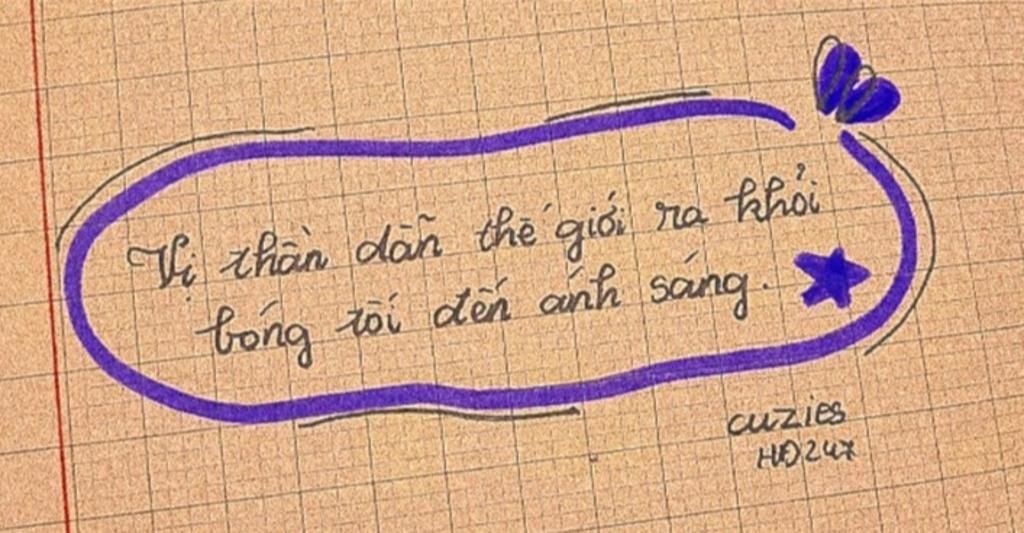 Vị thần dẫn thế giới ra khỏi
bóng tối đến ánh sáng.
cuzies
HĐ247